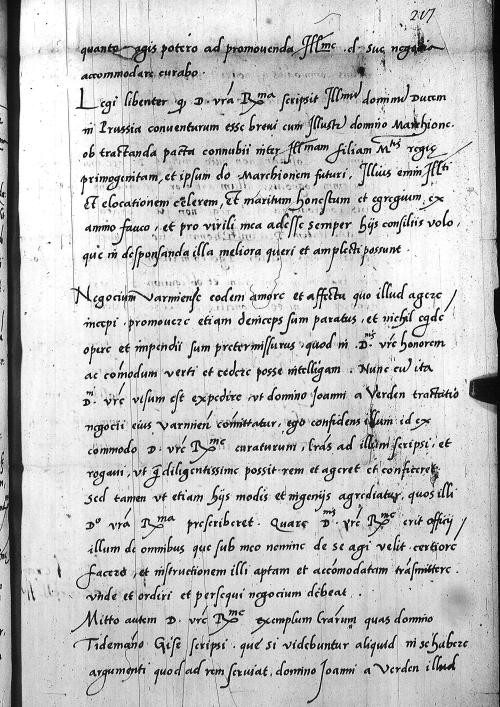 217
quanto agis potero ad promouenda Illme d. sue negocia
accommodare curabo.
Legi libenter q D. vra Rxma scripsit Illmu dominu Ducem
in Prussia conuenturum esse breui cum Illustri domino Marchione.
ob tractanda pacta connubii inter Illmam filiam Mtis regis
primogenitam, et ipsum do Marchionem futuri, Illius enim Illti
Et elocationem celerem, Et maritum honestum et egregium ex
animo faueo, et pro virili mea adesse semper hijs consiliis volo,
que in desponsanda illa meliora queri et amplecti possunt.
Negocium varmiense eodem amore et affectu quo illud agere
incepi, promouere etiam deinceps sum paratus, et nichil egde
opere et impendii sum pretermissurus, quod in D. nis vre honorem
ac comodum verti et cedere posse intelligam. Nunc cu ita
D. ni vre visum est expedire, vt domino Joanni a Verden tractatio
negocii eius varmien comittatur, ego confidens illum id ex
commodo D. vre Rxme curaturum, lras ad illum scripsi, et
rogaui, vt q diligentissime possit rem et ageret et conficeret.
Sed tamen vt etiam hijs modis et ingenijs agrediatur, quos illi
Do vra Rxma prescriberet. Quare D. nis vre Rxme erit officij
illum de omnibus que sub meo nomine de se agi velit certiore
facere, et instructionem illi aptam et accomodatam trasmittere.
vnde et ordiri et persequi negocium debeat.
Mitto autem D. vre Rxme exemplum lrarum quas domino
Tidemano Gise scripsi. que si videbuntur aliquid in se habere
argumenti quod ad rem seruiat, domino Joanni a Verden illud